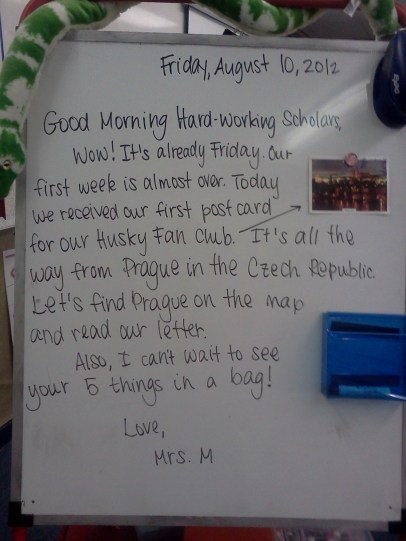 Friday, August 10, 2012
Good Morning Hard-Working Scholars,
Wow! It's already Friday. Our
first week is almost over. Today
we received our first post card
for our Husky Fan Club. It's all the
way from Prague in the Czech Republic.
Let's find Prague on the map
and read our letter.
Also, I can't wait to see
your 5 things in a bag!
Love,
Mrs. M
EXPO